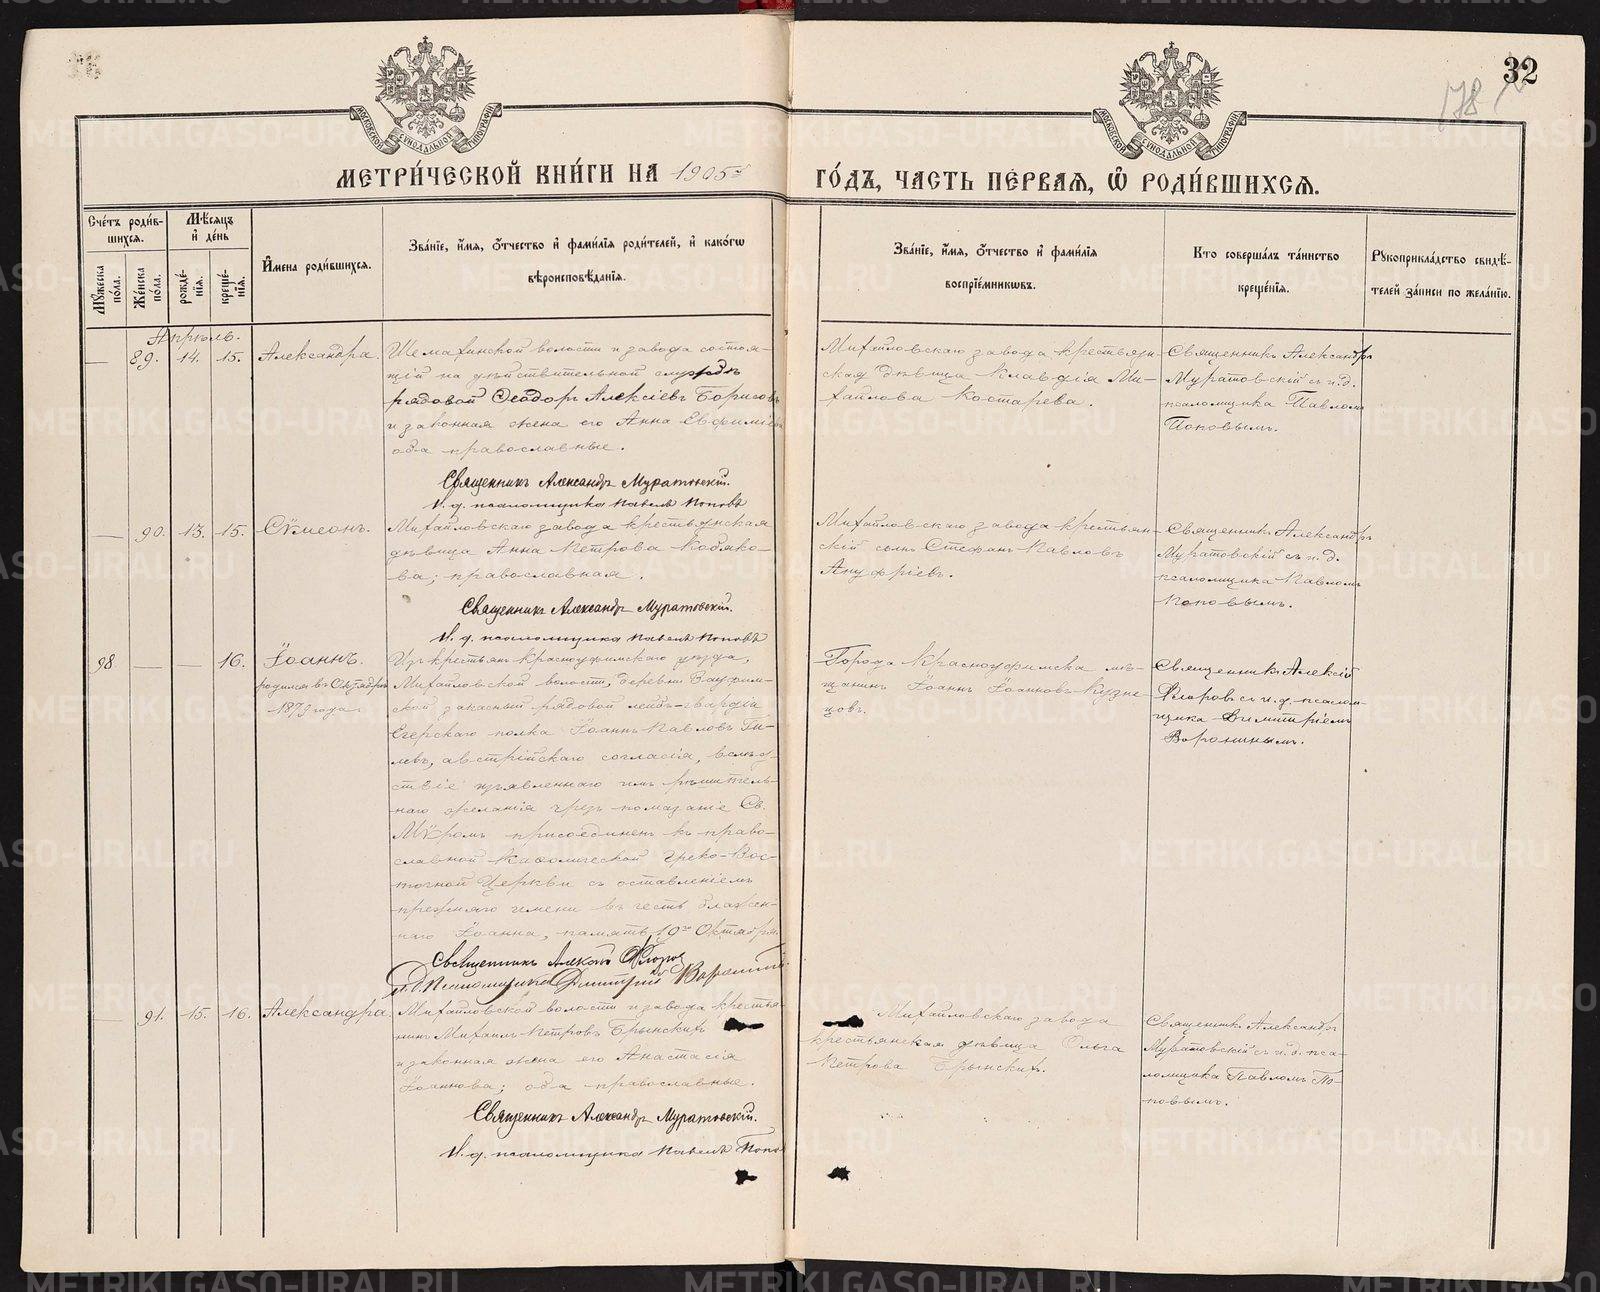 32
178
МОСКОВСКОЙ СѴНОДАЛЬНОЙ ТИПОГРАФІИ
МОСКОВСКОЙ СѴНОДАЛЬНОЙ ТИПОГРАФІИ
МЕТРИ́ЧЕСКОЙ КНИ́ГИ НА 1905й
ГО́ДЪ, ЧАСТЬ ПЕ́РВАѦ, Ѽ РОДИ́ВШИХСѦ.
Сче́тъ роди́в-
шихсѧ.
Мꙋ́жеска по́ла.
Же́нска по́ла.
Мѣ́сѧцъ
и҆ де́нь
рожде́-
нїѧ.
креще́-
нїѧ.
И҆мена̀ роди́вшихсѧ.
Зва́нїе, и҆́мѧ, ѻ҆́тчество и҆ фами́лїѧ роди́телей, и҆ како́гѡ
вѣроисповѣ́данїѧ.
Зва́нїе, и҆́мѧ, ѻ҆́тчество и҆ фами́лїѧ
воспрїе́мникѡвъ.
Кто̀ соверша́лъ та́инство
креще́нїѧ.
Рꙋкоприкла́дство свидѣ́-
телей за́писи по жела́нїю.
Апрѣль.
— 89. 14. 15. Александра
Шемахинской волости и завода состоя-
щій на дѣйствительной службѣ
рядовой Ѳеодоръ Алексіевъ Борисовъ
и законная жена его Анна Евфиміева
оба православные.
Священникъ Александръ Муратовскій.
И. д. псаломщика Павелъ Поповъ
Михайловскаго завода крестьян-
ская дѣвица Клавдія Ми-
хайлова Костарева.
Священникъ Александръ
Муратовскій съ и. д.
псаломщика Павломъ
Поповымъ.
— 90. 13. 15. Сѵмеонъ.
Михайловскаго завода крестьянская
дѣвица Анна Петрова Кобяко-
ва; православная.
Священникъ Александръ Муратовскій.
И. д. псаломщика Павелъ Поповъ
Михайловскаго завода крестьян-
скій сынъ Стефанъ Павловъ
Ануфріевъ.
Священникъ Александръ
Муратовскій съ и. д.
псаломщика Павломъ
Поповымъ.
98 — — 16. Іоаннъ.
родился въ Октябрѣ
1873 года
Изъ крестьянъ Красноуфимскаго уѣзда,
Михайловской волости, деревни
запасный рядовой лейбъ-гвардіи
Егерскаго полка Іоаннъ Павловъ Ги-
левъ, австрійскаго согласія, вслѣд-
ствіе изъявленнаго имъ рѣшитель-
наго желанія чрезъ помазаніе Св.
Мѵромъ присоединенъ къ право-
славной Каѳолической Греко-Вос-
точной Церкви съ оставленіемъ
прежняго имени въ честь блажен-
наго Іоанна, память Октября.
Священникъ Алексій Флоровъ
И. д. Псаломщика Димитрій Воронинъ
Города Красноуфимска мѣ-
щанинъ Іоаннъ Іоанновъ Кузне-
цовъ.
Священникъ Алексій
Флоровъ съ и. д. псалом-
щика Димитріемъ
Воронинымъ.
— 91. 15. 16. Александра
Михайловской волости и завода крестья-
нинъ Михаилъ Петровъ Брынскихъ
и законная жена его Анастасія
Іоаннова; оба православные.
Священникъ Александръ Муратовскій.
И. д. псаломщика Павелъ Попо
Михайловскаго завода
крестьянская дѣвица Ольга
Петрова Брынскихъ.
Священникъ Александръ
Муратовскій съ и. д. пса-
ломщика Павломъ По-
повымъ.
METRIKI.GASO-URAL.RU